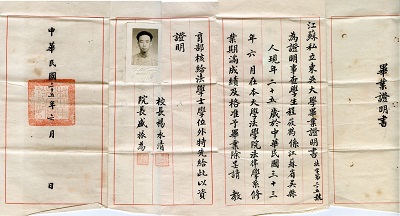 畢業證明書
江蘇私立東吳大學畢業證明書
為證明事查學生程 係江蘇省吳縣
人現年二十五歲於中華民國三十三
年六月在本大學法學院法律學系修
業期滿成績及格准予畢業除呈請 教
育部核給法學士學位外特先給此以資
證明
校長楊永清
院長盛振為
中華民國三十五年六月 日